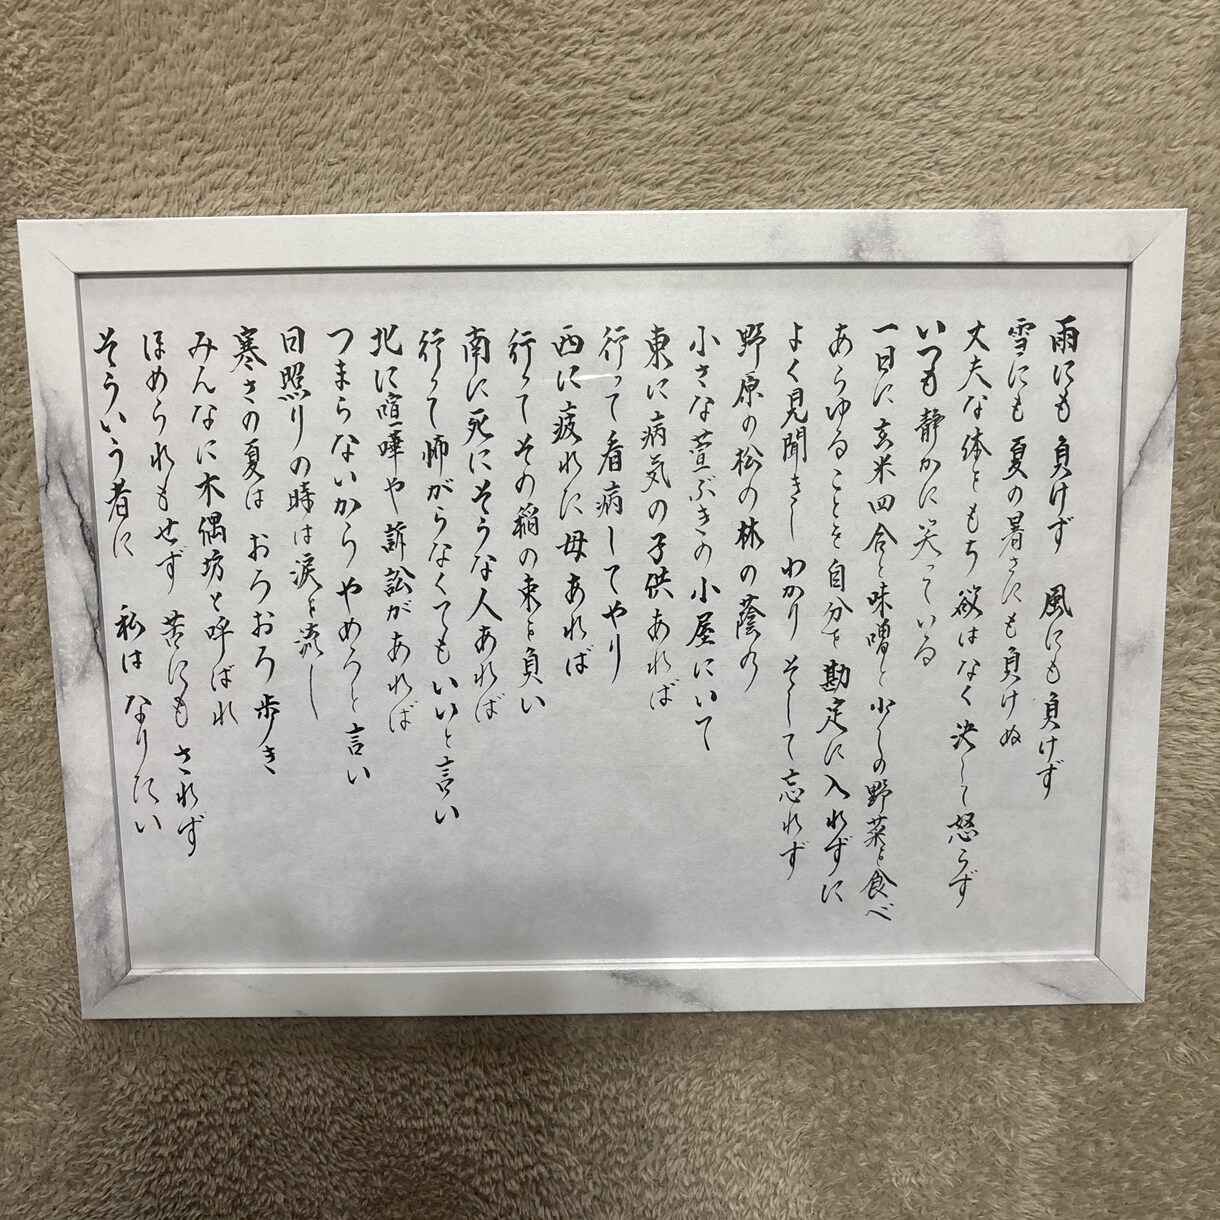 雨にも 負けず 風にも負けず
雪にも 夏の暑さにも負けぬ
丈夫な体ともち 欲はなく 決して怒らず
いつも静かに笑っている
一日に玄米四合と味噌と少しの野菜を食べ
あらゆることを自分を勘定に入れずに
よく見聞きし わかり そして忘れず
野原の松の林の蔭の
小さな萱ぶきの小屋にいて
東に病気の子供あれば
行って看病してやり
西に疲れた母あれば
行ってその稲の束を負い
南に死にそうな人あれば
行って怖がらなくてもいいと言い
北に喧嘩や訴訟があれば
つまらないからやめろと言い
日照りの時は涙を流し
寒さの夏は おろおろ歩き
みんなに木偶坊と呼ばれ
ほめられもせず 苦にもされず
そういう者に 私は なりたい